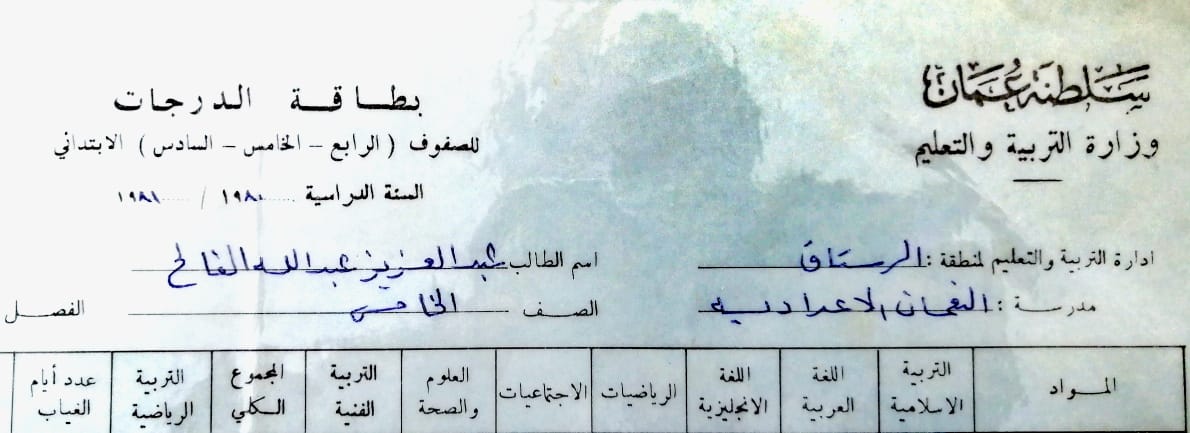 سلطنة عمان
وزارة التربية والتعليم
بطاقة الدرجات
للصفوف ( الرابع - الخامس - السادس ) الابتدائي
السنة الدراسية ١٩٨٠ / ١٩٨١
ادارة التربية والتعليم لمنطقة : الرستاق اسم الطالب عبد العزيز عبد الله الفالح
مدرسة : النعمان الاعدادية الصف الخامس الفصل
المواد التربية الاسلامية اللغة العربية اللغة الانجليزية الرياضيات الاجتماعيات العلوم والصحة التربية الفنية المجموع الكلي التربية الرياضية عدد أيام الغياب